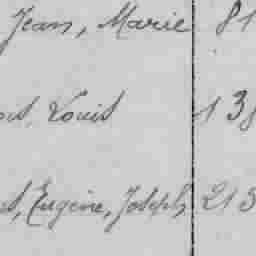 Jean, Marie 81
Louis 138
Eugène, Joseph 213